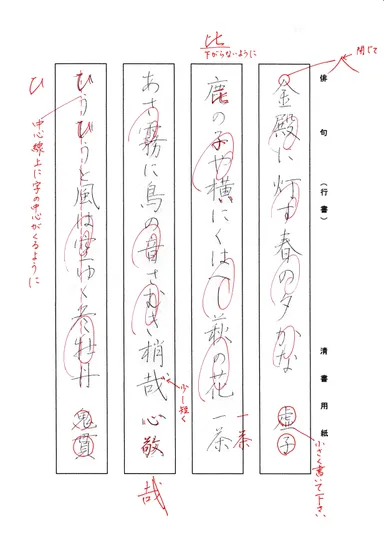 俳句 (行書) 清書用紙
閉じて
人
金殿に灯す春の夕かな 虚子
小さく書いて下さい
比
下がらないように
鹿の子や横にくはへし萩の花 一茶
一茶
あさ霧に鳥の音さむき梢哉 心敬
少し短く
哉
ひうひうと風は空ゆく冬牡丹 鬼貫
ひ
中心線上に字の中心がくるように